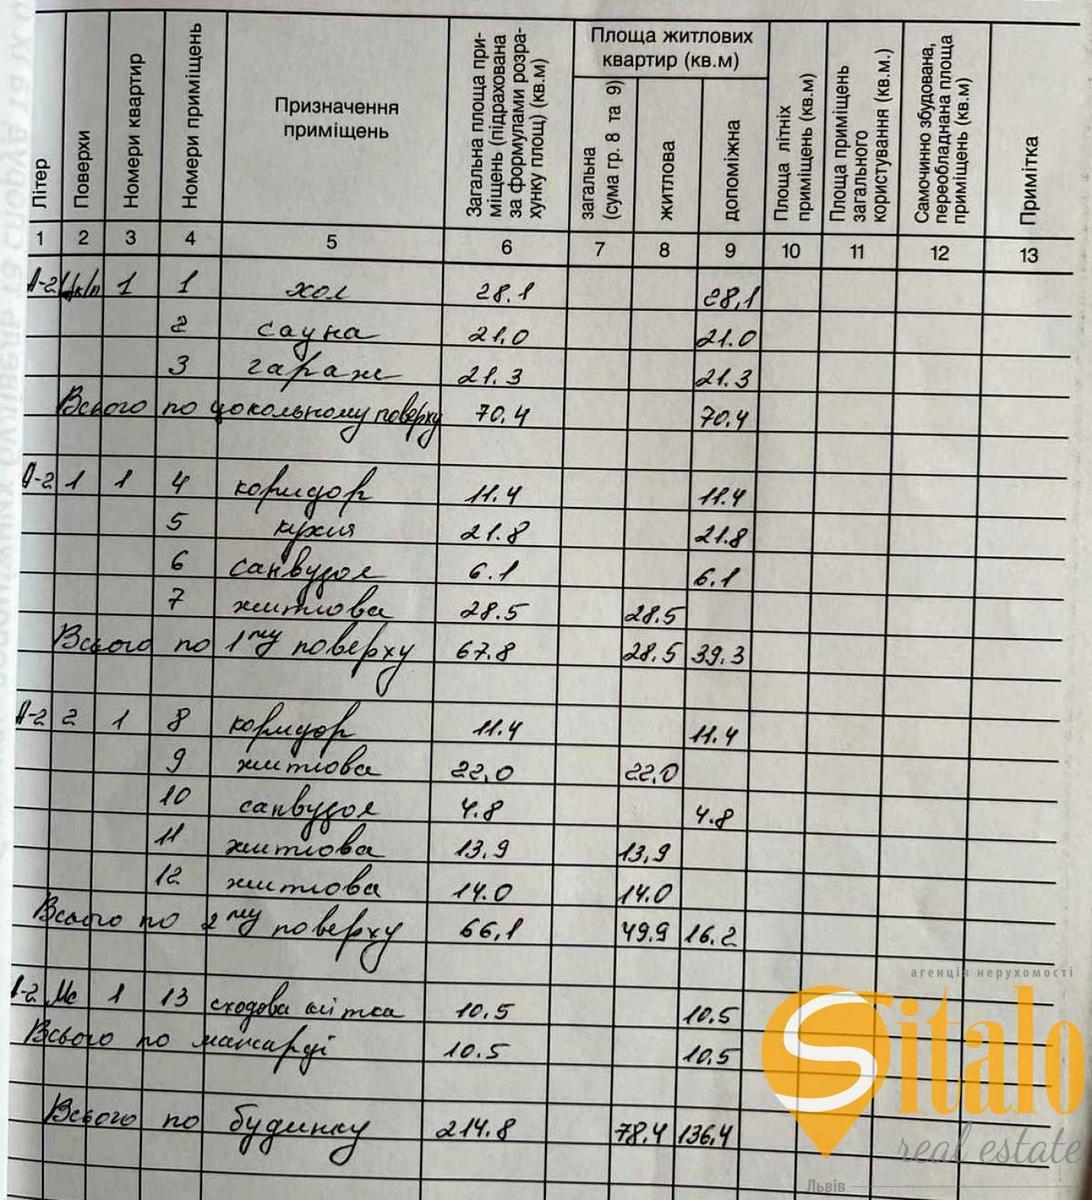 Літер
Поверхи
Номери квартир
Номери приміщень
Призначення приміщень
Загальна площа приміщень (підрахована за формулами розрахунку площ) (кв.м)
Площа житлових квартир (кв.м)
загальна (сума гр. 8 та 9)
житлова
допоміжна
Площа літніх приміщень (кв.м)
Площа приміщень загального користування (кв.м.)
Самочинно збудована, переобладнана площа приміщень (кв.м)
Примітка
1 2 3 4 5 6 7 8 9 10 11 12 13
А-2 ц/п 1 1 хол 28.1 28,1
2 сауна 21.0 21.0
3 гараж 21.3 21.3
Всього по цокольному поверху 70.4 70.4
А-2 1 1 4 коридор 11.4 11.4
5 кухня 21.8 21.8
6 санвузол 6.1 6.1
7 житлова 28.5 28.5
Всього по 1му поверху 67.8 28.5 39.3
А-2 2 1 8 коридор 11.4 11.4
9 житлова 22,0 22,0
10 санвузол 4.8 4.8
11 житлова 13,9 13,9
12 житлова 14.0 14.0
Всього по 2му поверху 66,1 49.9 16.2
А-2 Мс 1 13 сходова клітка 10.5 10.5
Всього по мансарді 10.5 10.5
Всього по будинку 214.8 78,4 136,4
агенція нерухомості
Sitalo
real estate
Львів